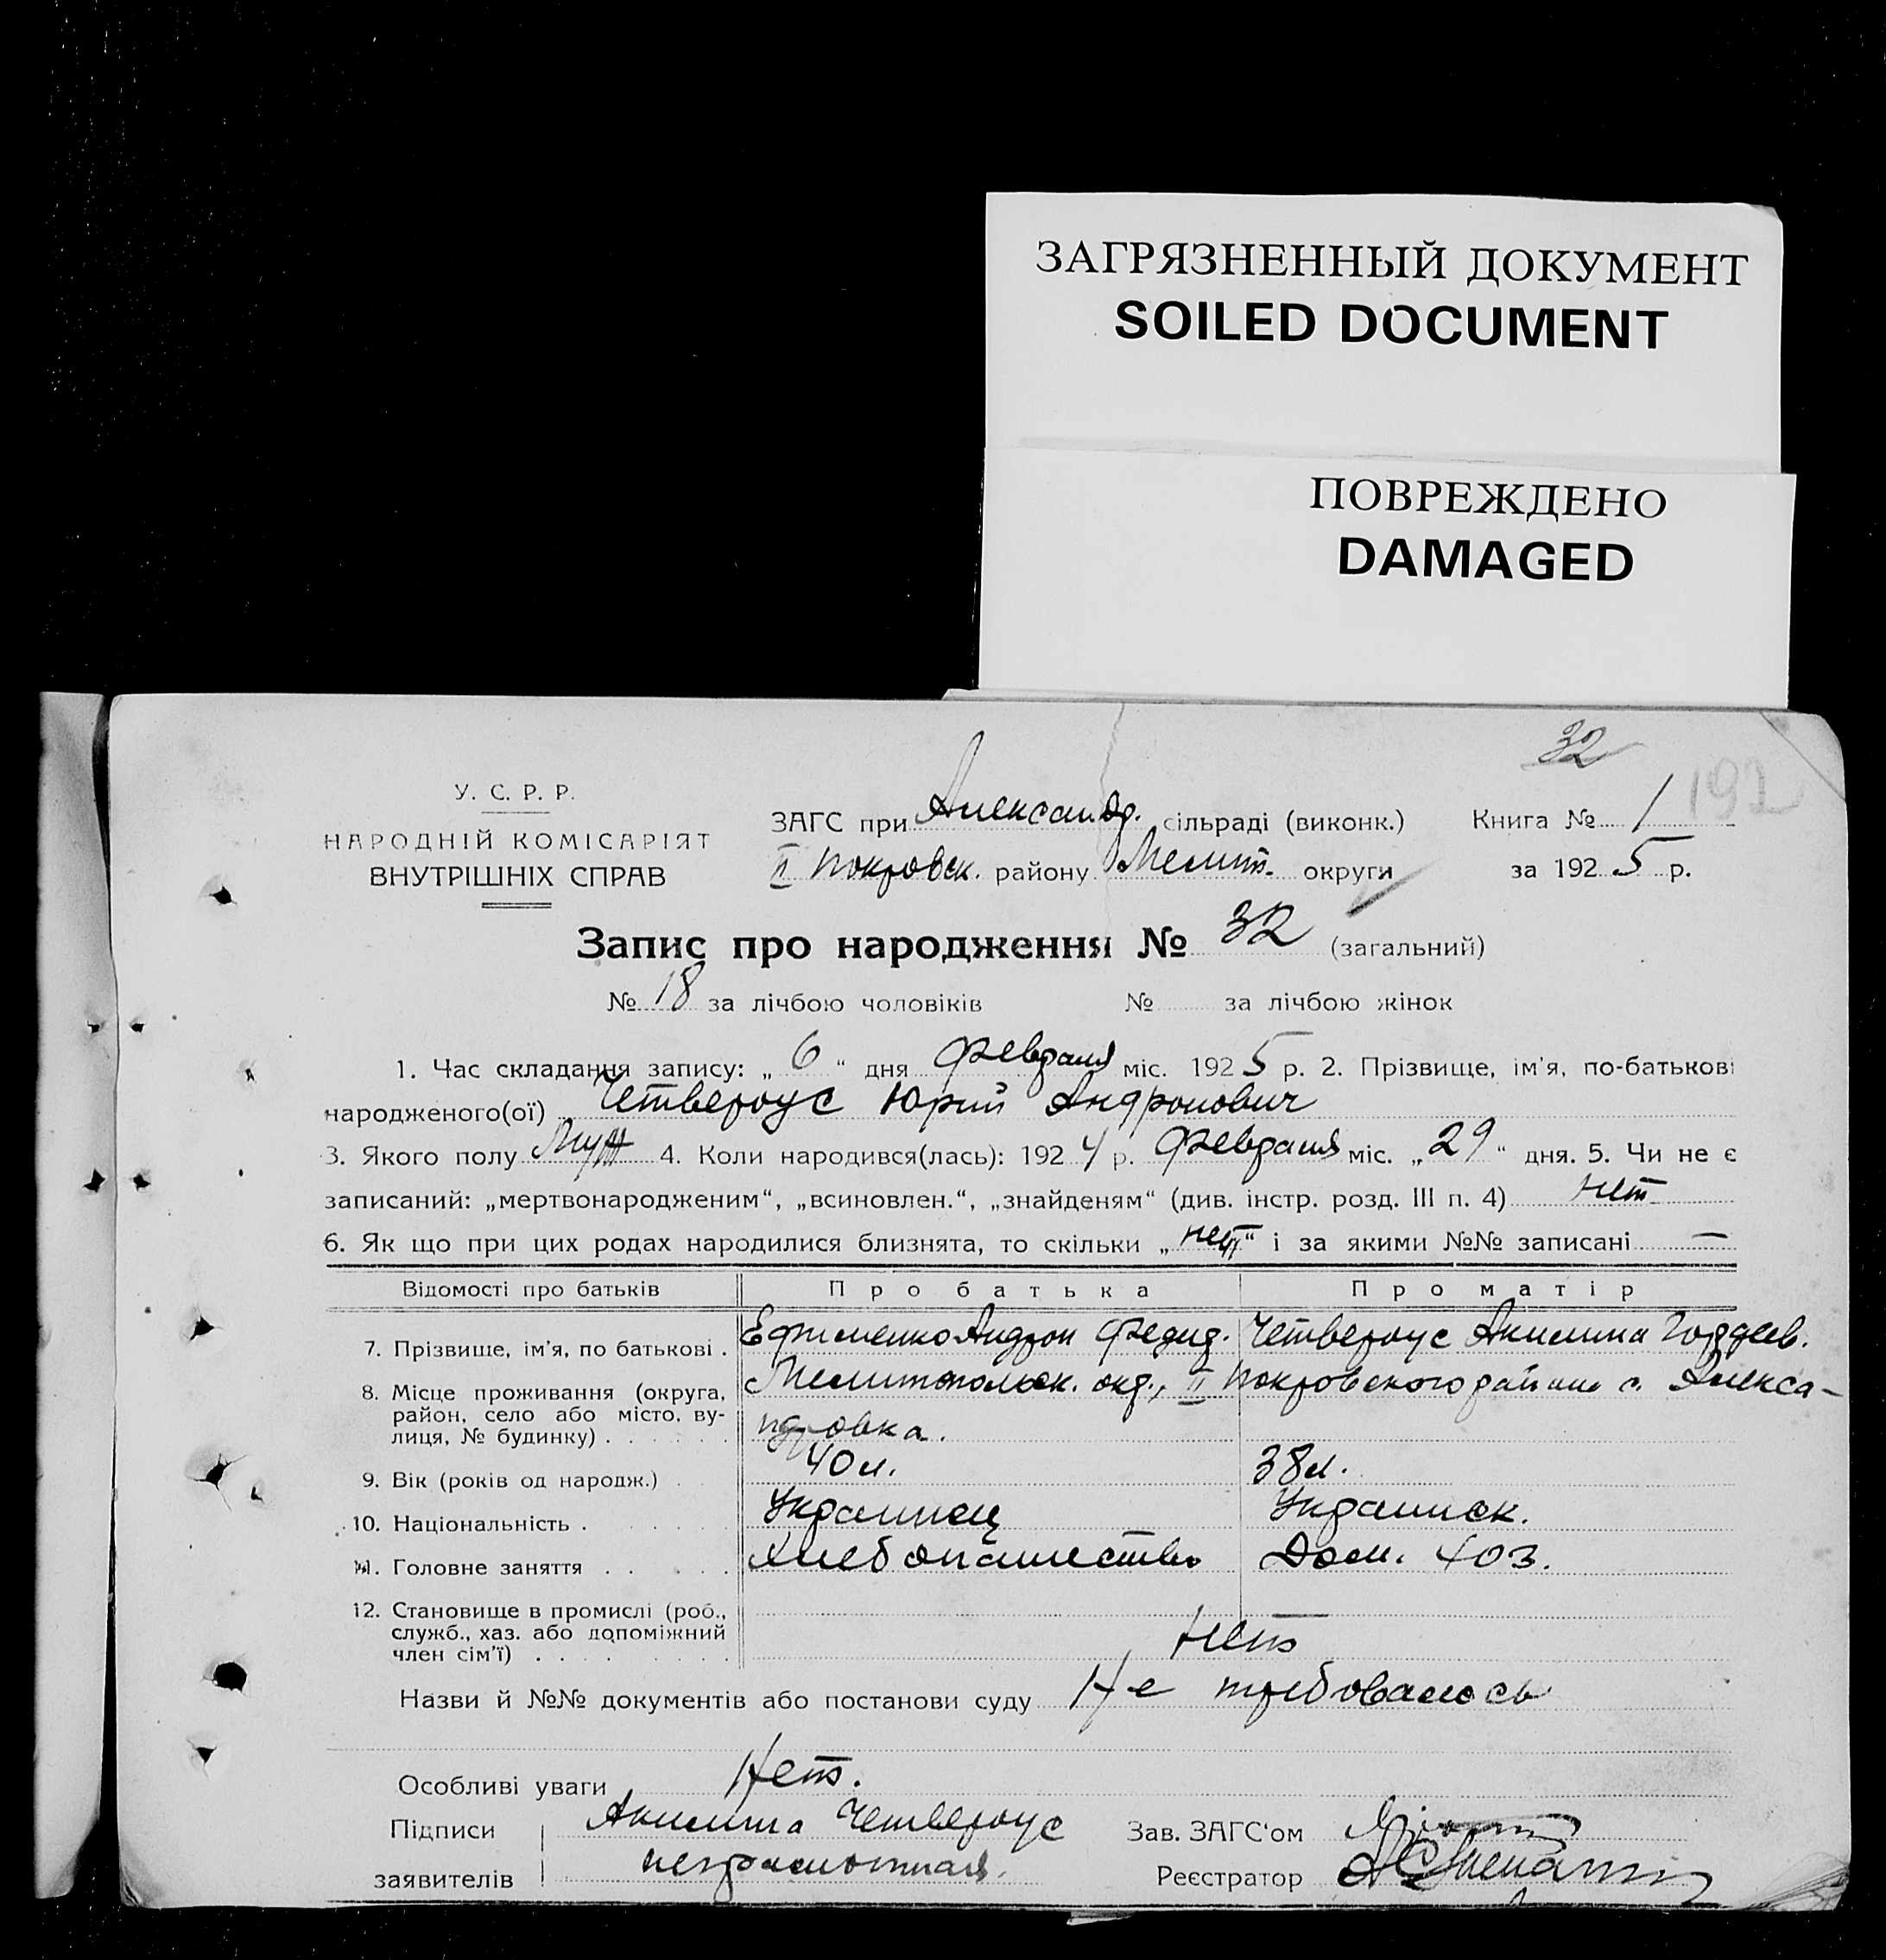 ЗАГРЯЗНЕННЫЙ ДОКУМЕНТ
SOILED DOCUMENT
ПОВРЕЖДЕНО
DAMAGED
32
192
У. С. Р. Р.
НАРОДНІЙ КОМІСАРІЯТ
ВНУТРІШНІХ СПРАВ
ЗАГС при Александр. сільраді (виконк.) Книга № 1
II Покровск. району Мелит. округи за 1925 р.
Запис про народження № 32 (загальний)
№ 18 за лічбою чоловіків № за лічбою жінок
1. Час складання запису: „6“ дня февраля міс. 1925 р. 2. Прізвище, ім'я, по-батькові
народженого(ої) Четвероус Юрий Андронович
3. Якого полу Муж 4. Коли народився(лась): 1924 р. февраля міс. „29“ дня. 5. Чи не є
записаний: „мертвонародженим“, „всиновлен.“, „знайденям“ (див. інстр. розд. III п. 4) нет
6. Як що при цих родах народилися близнята, то скільки „нет“ і за якими №№ записані —
Відомості про батьків Про батька Про матір
7. Прізвище, ім'я, по батькові . Ефименко Андрон Четвероус Акилина Гордеев.
8. Місце проживання (округа, Мелитопольск. окр., II Покровского района с. Алекса-
район, село або місто, ву-
лиця, № будинку) . . . . . . ндровка.
9. Вік (років од народж.) . 40 л. 38 л.
10. Національність . . . . . . Украинец Украинск.
11. Головне заняття . . . . . . Хлебопашество Дом. хоз.
12. Становище в промислі (роб.,
служб., хаз. або допоміжний Нет
член сім'ї) . . . . . . . . .
Назви й №№ документів або постанови суду Не требовалось
Особливі уваги Нет.
Підписи Акилина Четвероус Зав. ЗАГС'ом
заявителів неграмотная. Реєстратор